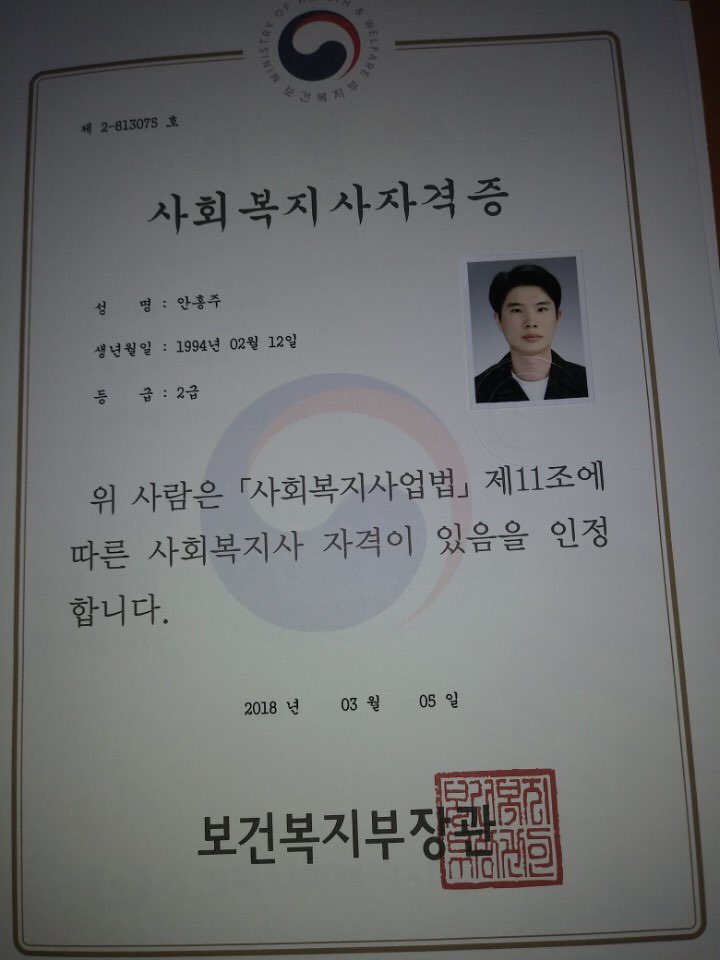 MINISTRY OF HEALTH & WELFARE
보건복지부
제 2-813075 호
사회복지사자격증
성 명 : 안흥주
생년월일 : 1994년 02월 12일
등 급 : 2급
위 사람은 「사회복지사업법」 제11조에
따른 사회복지사 자격이 있음을 인정
합니다.
2018 년 03 월 05 일
보건복지부장관